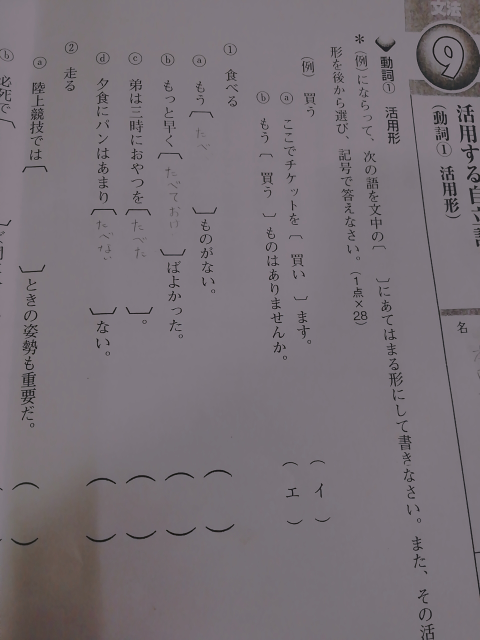 文法
9
活用する自立語
(動詞① 活用形)
名
動詞① 活用形
*(例)にならって、次の語を文中の〔 〕にあてはまる形にして書きなさい。また、その活
形を後から選び、記号で答えなさい。(1点×28)
(例) 買う
ⓐ ここでチケットを〔 買い 〕ます。 ( イ )
ⓑ もう〔 買う 〕ものはありませんか。 ( エ )
① 食べる
ⓐ もう〔 たべ 〕ものがない。 ( )
ⓑ もっと早く〔 たべておけ 〕ばよかった。 ( )
ⓒ 弟は三時におやつを〔 たべた 〕。 ( )
ⓓ 夕食にパンはあまり〔 たべない 〕ない。 ( )
② 走る
ⓐ 陸上競技では〔 〕ときの姿勢も重要だ。 ( )
ⓑ 必死で〔